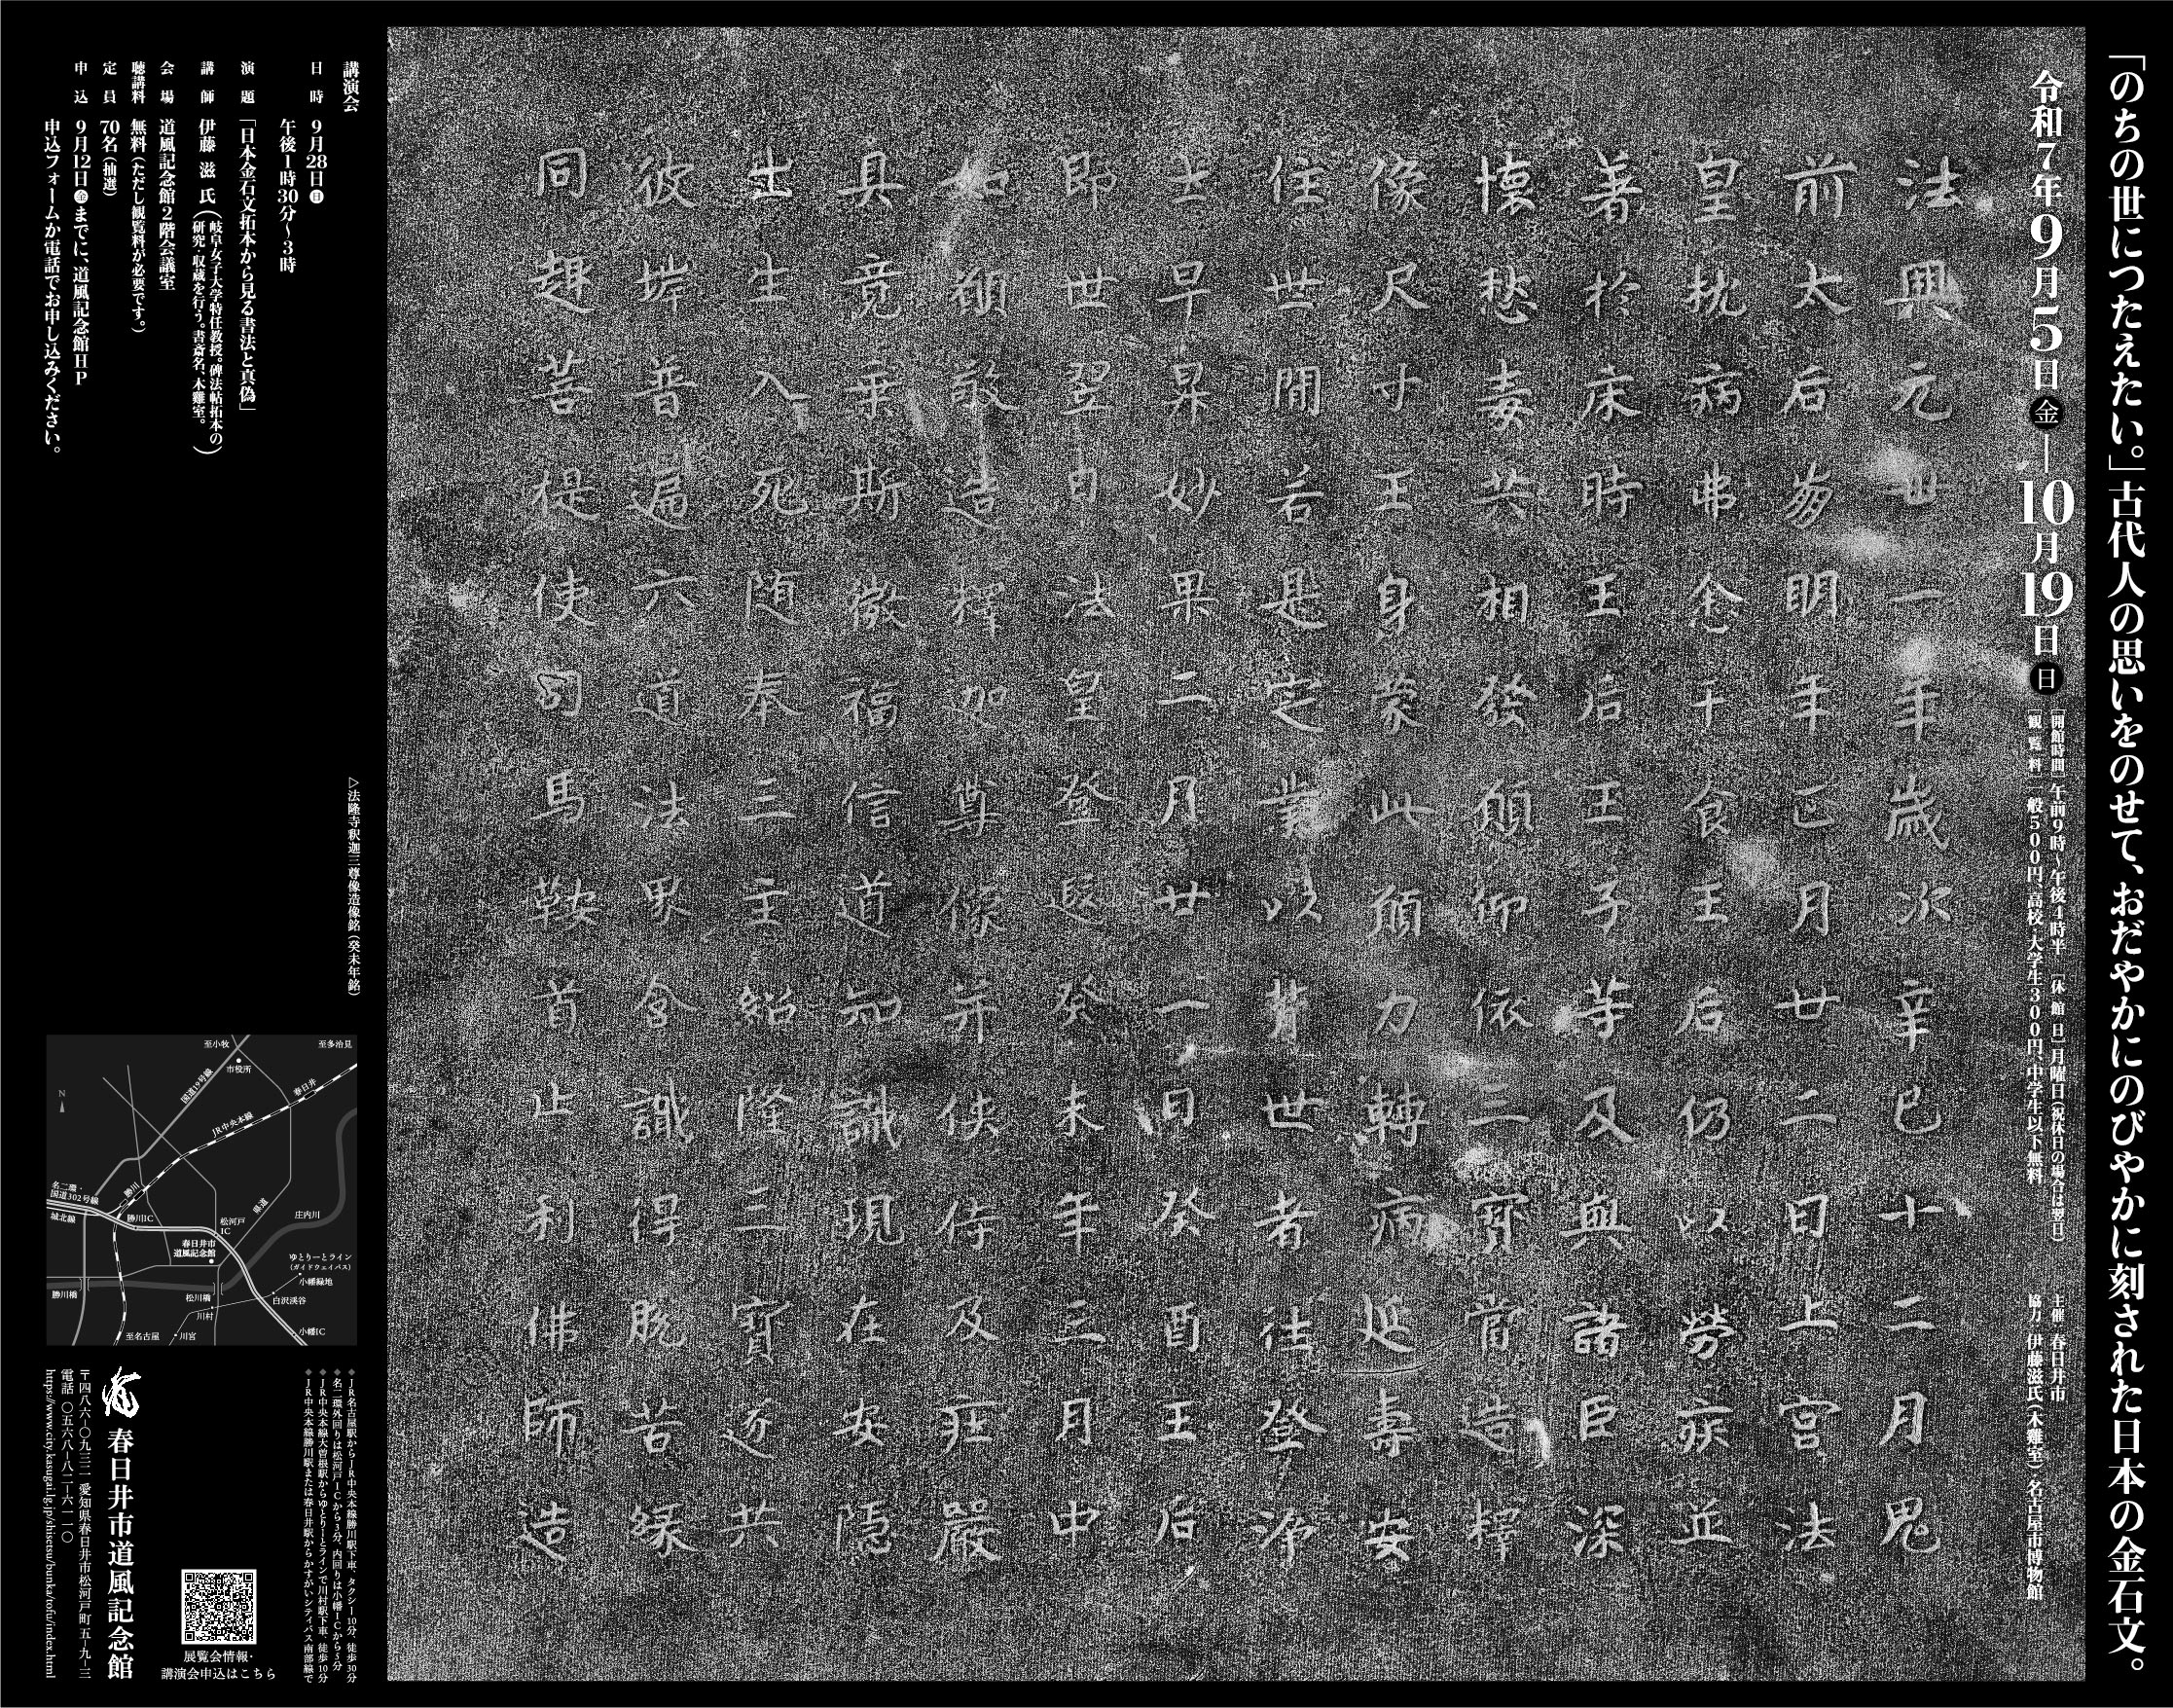 「のちの世につたえたい。」古代人の思いをのせて、おだやかにのびやかに刻された日本の金石文。
令和7年9月5日㊎—10月19日㊐
［開館時間］午前9時～午後4時半　［休館日］月曜日（祝休日の場合は翌日）
［観覧料］一般500円、高校・大学生300円、中学生以下無料
主催　春日井市
協力　伊藤滋氏（木雞室）・名古屋市博物館
法興元丗一年歳次辛巳十二月鬼
前太后崩明年正月廿二日上宮法
皇枕病弗悆干食王后仍以勞疾並
著於床時王后王子等及與諸臣深
懐愁毒共相發願仰依三寳當造釋
像尺寸王身蒙此願力轉病延壽安
住世間若是定業以背世者往登浄
土早昇妙果二月廿一日癸酉王后
即世翌日法皇登遐癸未年三月中
如願敬造釋迦尊像并侠侍及荘嚴
具竟乗斯微福信道知識現在安隠
出生入死随奉三主紹隆三寳遂共
彼岸普遍六道法界含識得脱苦縁
同趣菩提使司馬鞍首止利佛師造
講演会
日時　9月28日㊐
午後1時30分～3時
演題　「日本金石文拓本から見る書法と真偽」
講師　伊藤　滋　氏（岐阜女子大学特任教授。碑法帖拓本の
研究・収蔵を行う。書斎名、木雞室。）
会場　道風記念館2階会議室
聴講料　無料（ただし観覧料が必要です。）
定員　70名（抽選）
申込　9月12日㊎までに、道風記念館HP
申込フォームか電話でお申し込みください。
▷法隆寺釈迦三尊像造像銘（癸未年銘）
至小牧
至多治見
市役所
国道19号線
春日井
JR中央本線
N
名二環・
国道302号線
勝川
城北線
勝川IC
松河戸
IC
県道
庄内川
春日井市
道風記念館
ゆとりーとライン
（ガイドウェイバス）
小幡緑地
勝川橋
松川橋
白沢渓谷
川村
至名古屋
川宮
小幡IC
◆JR名古屋駅からJR中央本線勝川駅下車、タクシー10分、徒歩30分
◆名二環外回りは松河戸ICから3分、内回りは小幡ICから5分
◆JR中央本線大曽根駅からゆとりーとラインで川村駅下車、徒歩10分
◆JR中央本線勝川駅または春日井駅からかすがいシティバス南部線で
春日井市道風記念館
〒四八六―〇九三二　愛知県春日井市松河戸町五―九―三
電話　〇五六八―八二―六一一〇
https://www.city.kasugai.lg.jp/shisetsu/bunka/tofu/index.html
展覧会情報・
講演会申込はこちら